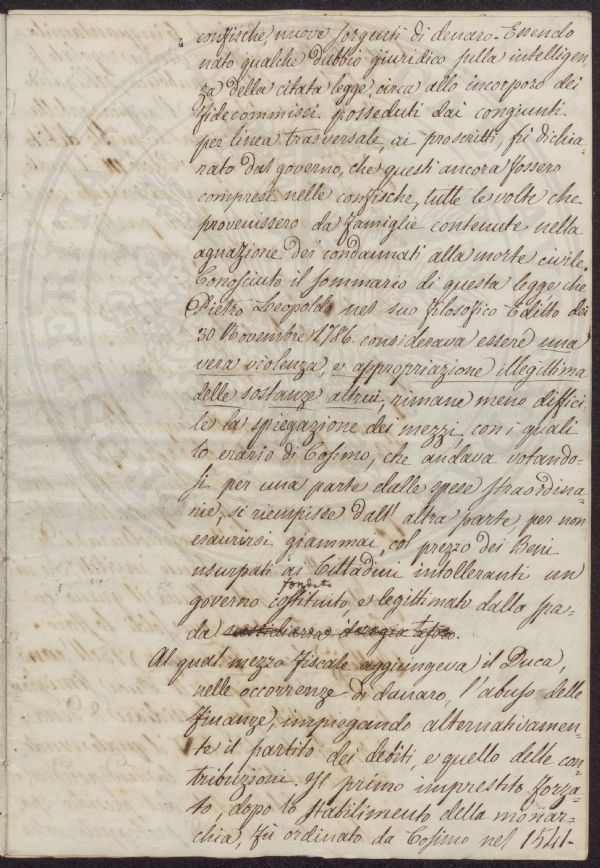 confische nuove sorgenti di denaro. Essendo
nato qualche dubbio giuridico sulla intelligen-
za della citata legge, circa allo incorporo dei
fidecommissi posseduti dai congiunti
per linea trasversale, ai proscritti, fù dichia-
rato dal governo, che questi ancora fossero
compresi nelle confische, tutte le volte che
provenissero da famiglie contenute nella
agnazione dei condannati alla morte civile.
Conosciuto il sommario di questa legge che
Pietro Leopoldo nel suo filosofico Editto dei
30 Novembre 1786. considerava essere una
vera violenza, e appropriazione illegittima
delle sostanze altrui, rimane meno diffici-
le la spiegazione dei mezzi, con i quali
lo erario di Cosimo, che andava votando-
si per una parte dalle spese straordina-
rie, si riempisse dall' altra parte per non
esaurirsi giammai, col prezzo dei Beni
usurpati ai Cittadini intolleranti un
fondato
governo costituito, e legittimato dalla spa-
da
Al qual mezzo fiscale aggiungeva il Duca,
nelle occorrenze di danaro, l'abuso delle
finanze, impiegando alternativamen-
te il partito dei debiti, e quello delle con-
tribuzioni. Il primo imprestito forza-
to, dopo lo stabilimento della monar-
chia, fù ordinato da Cosimo nel 1541.